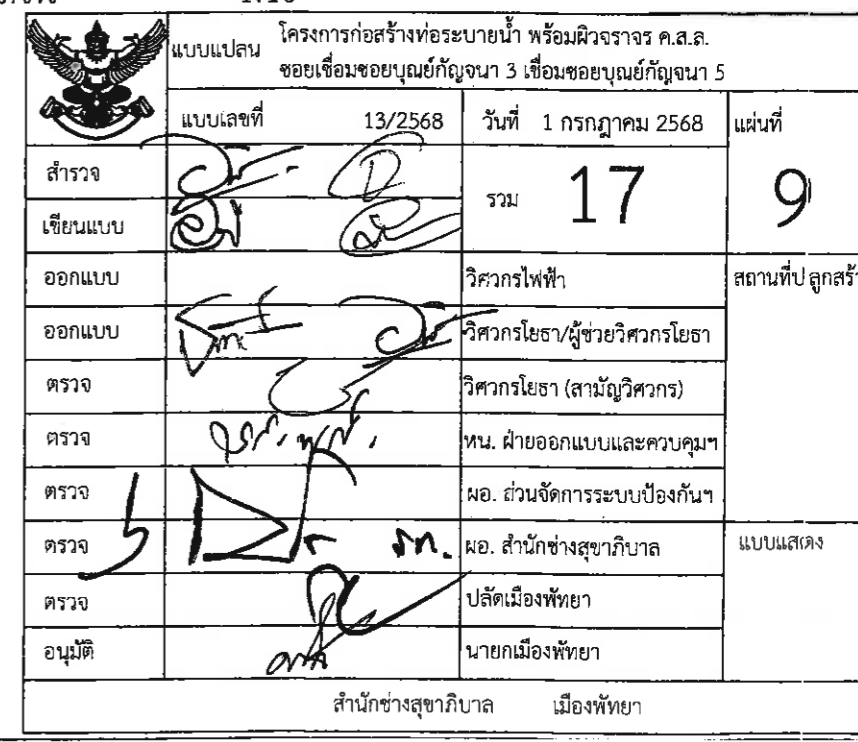 แบบแปลน โครงการก่อสร้างท่อระบายน้ำ พร้อมผิวจราจร ค.ส.ล.
ซอยเชื่อมซอยบุณย์กัญจนา 3 เชื่อมซอยบุณย์กัญจนา 5
แบบเลขที่ 13/2568 วันที่ 1 กรกฎาคม 2568 แผ่นที่
สำรวจ รวม 17 9
เขียนแบบ
ออกแบบ วิศวกรไฟฟ้า สถานที่ปลูกสร้
ออกแบบ วิศวกรโยธา/ผู้ช่วยวิศวกรโยธา
ตรวจ วิศวกรโยธา (สามัญวิศวกร)
ตรวจ หน. ฝ่ายออกแบบและควบคุมฯ
ตรวจ ผอ. ส่วนจัดการระบบป้องกันฯ
ตรวจ ผอ. สำนักช่างสุขาภิบาล แบบแสดง
ตรวจ ปลัดเมืองพัทยา
อนุมัติ นายกเมืองพัทยา
สำนักช่างสุขาภิบาล เมืองพัทยา